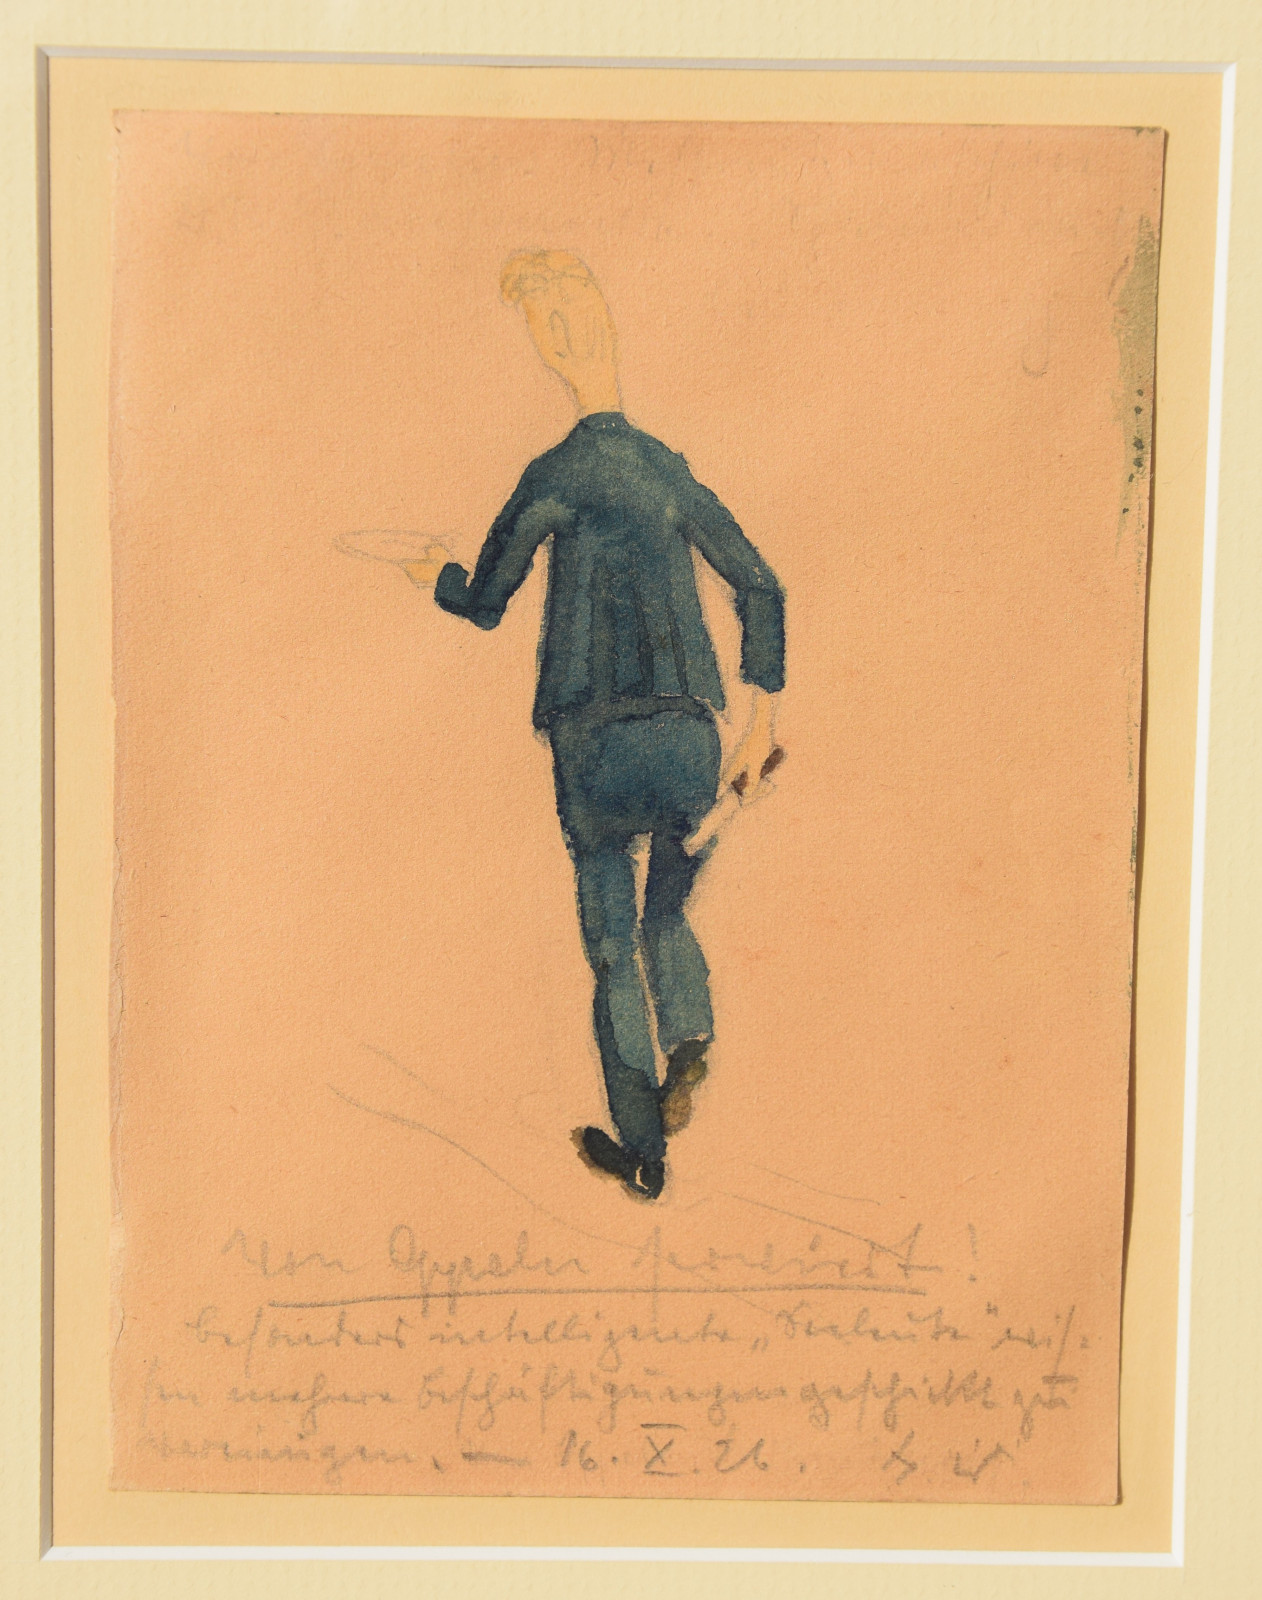 Von Oppeln serviert!
besonders intelligente „Seeleute" wis-
sen mehrere Beschäftigungen geschickt zu
vereinigen. — 16. X. 26.